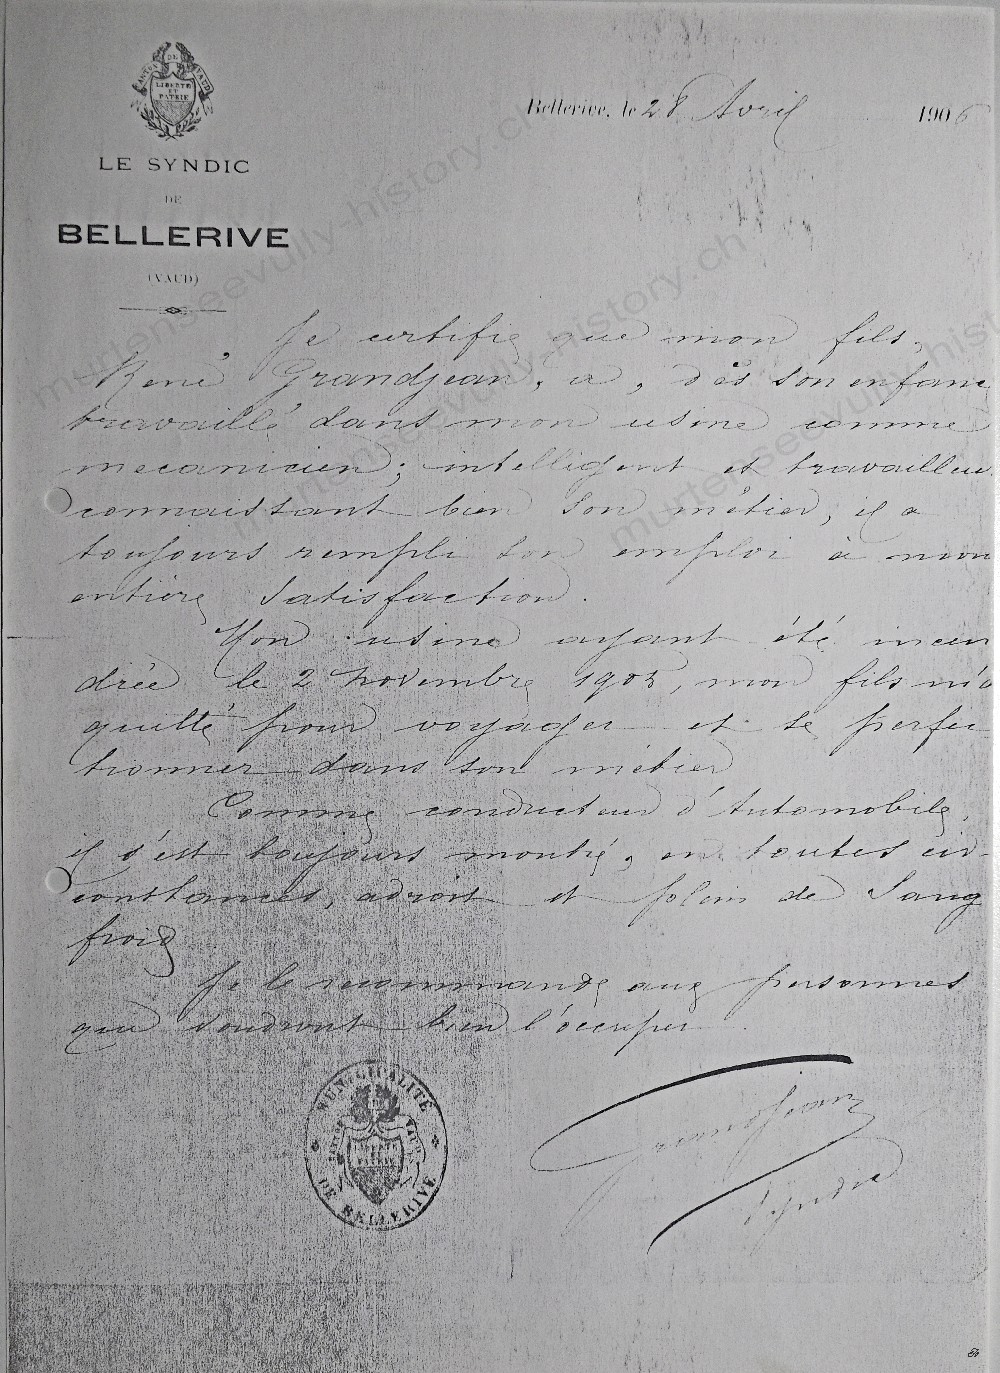 CANTON DE VAUD
LIBERTÉ
ET
PATRIE
LE SYNDIC
DE
BELLERIVE
(VAUD)
Bellerive, le 28 Avril 1906
Je certifie que mon fils,
René Grandjean, a, dès son enfance
travaillé dans mon usine comme
mecanicien; intelligent et travailleur
connaissant bien son métier, il a
toujours rempli son emploi à mon
entière satisfaction.
Mon usine ayant été incen
diée le 2 novembre 1905, mon fils m'a
quitté pour voyager et se perfec
tionner dans son métier
Comme conducteur d'Automobile,
il s'est toujours montré, en toutes cir-
constances, adroit et plein de sang
froid
Je le recommande aux personnes
qui voudront bien l'occuper.
MUNICIPALITÉ
CANTON DE VAUD
LIBERTÉ
ET
PATRIE
DE BELLERIVE
Grandjean
Syndic
murtenseevully-history.ch
murtenseevully-history.ch
murtenseevully-history.ch